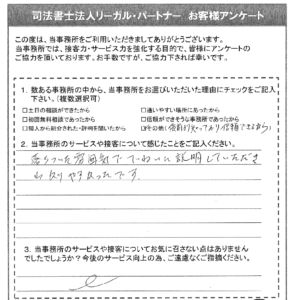 司法書士法人リーガル・パートナー お客様アンケート
この度は、当事務所をご利用いただきましてありがとうございます。
当事務所では、接客力・サービス力を強化する目的で、皆様にアンケートの
ご協力を頂いております。お手数ですが、ご協力下されば幸いです。
1. 数ある事務所の中から、当事務所をお選びいただいた理由にチェックをご記入
下さい。(複数選択可)
□土日の相談ができたから □通いやすい場所にあったから
□初回無料相談であったから □信頼ができそうな事務所であったから
□知人から紹介された・評判を聞いたから □その他(
2. 当事務所のサービスや接客について感じたことをご記入ください。
落ちついた雰囲気で ていねいに説明していただき
わかりやすかったです。
3. 当事務所のサービスや接客についてお気に召さない点はありません
でしたでしょうか?今後のサービス向上の為、ご遠慮なくご指摘ください。